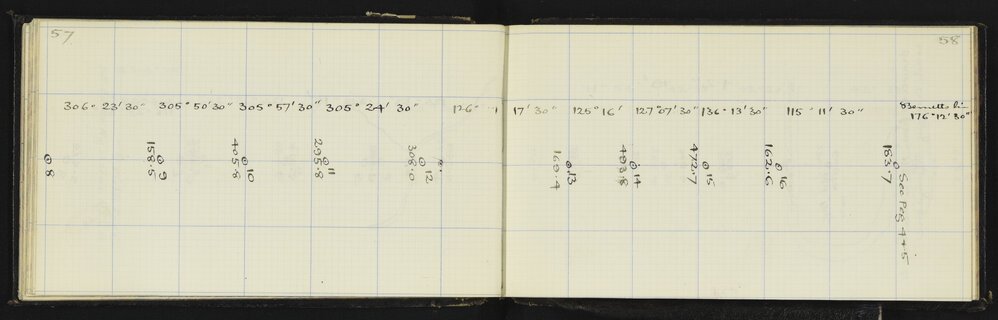 57
306° 23' 30" 305° 50' 30" 305° 57' 30" 305° 24' 30" 126°
8
158.5 9
405.8 10
295.8 11
308.0 12
58
17' 30" 125° 16' 127° 07' 30" 136° 13' 30" 115° 11' 30"
176° 12' 30"
169.4 13
493.8 14
472.7 15
162.6 16
183.7 See Peg 4+5